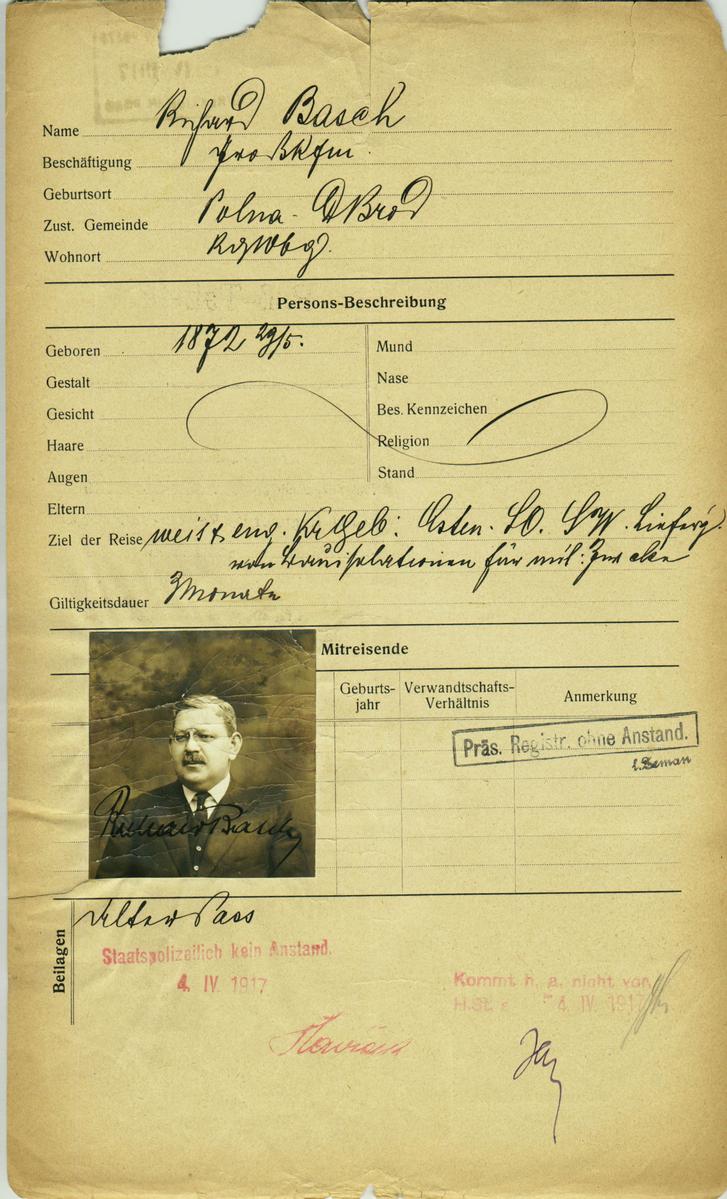 Name Richard Basch
Beschäftigung Großkfm.
Geburtsort
Zust. Gemeinde Polna - DBrod
Wohnort KglWbg.
Persons-Beschreibung
Geboren 1872 29/5.
Gestalt
Gesicht
Haare
Augen
Mund
Nase
Bes. Kennzeichen
Religion
Stand
Eltern
Ziel der Reise eng. Lieferg.
für mil: Zwecke
Giltigkeitsdauer 3 Monate
Mitreisende
Geburts-
jahr
Verwandtschafts-
Verhältnis
Anmerkung
Präs. Registr. ohne Anstand.
Richard Basch
Beilagen
Alter Pass
Staatspolizeilich kein Anstand.
4. IV. 1917
Kommt h. a. nicht vor.
H.St. 4. IV. 1917